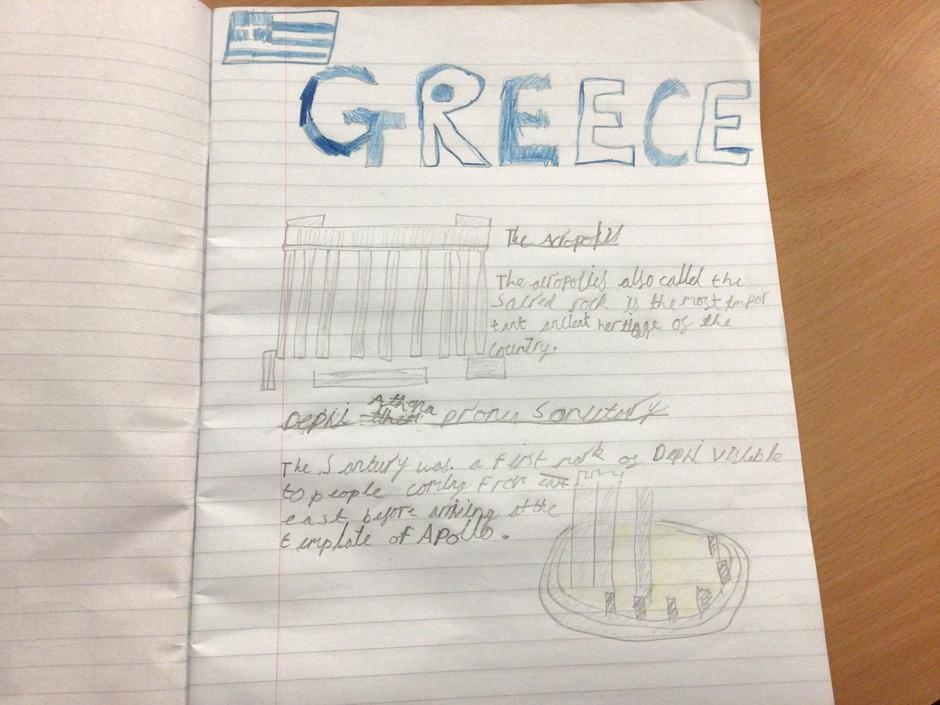 GREECE
The acropolis
The acropolies also called the
Sacred rock is the most impor
tant ancient hertigge of the
country.
Dephi Athena pronia Sanctury
The Santury was a first mark of Dephi visible
to people coming from
east before arriving at the
template of Apollo.